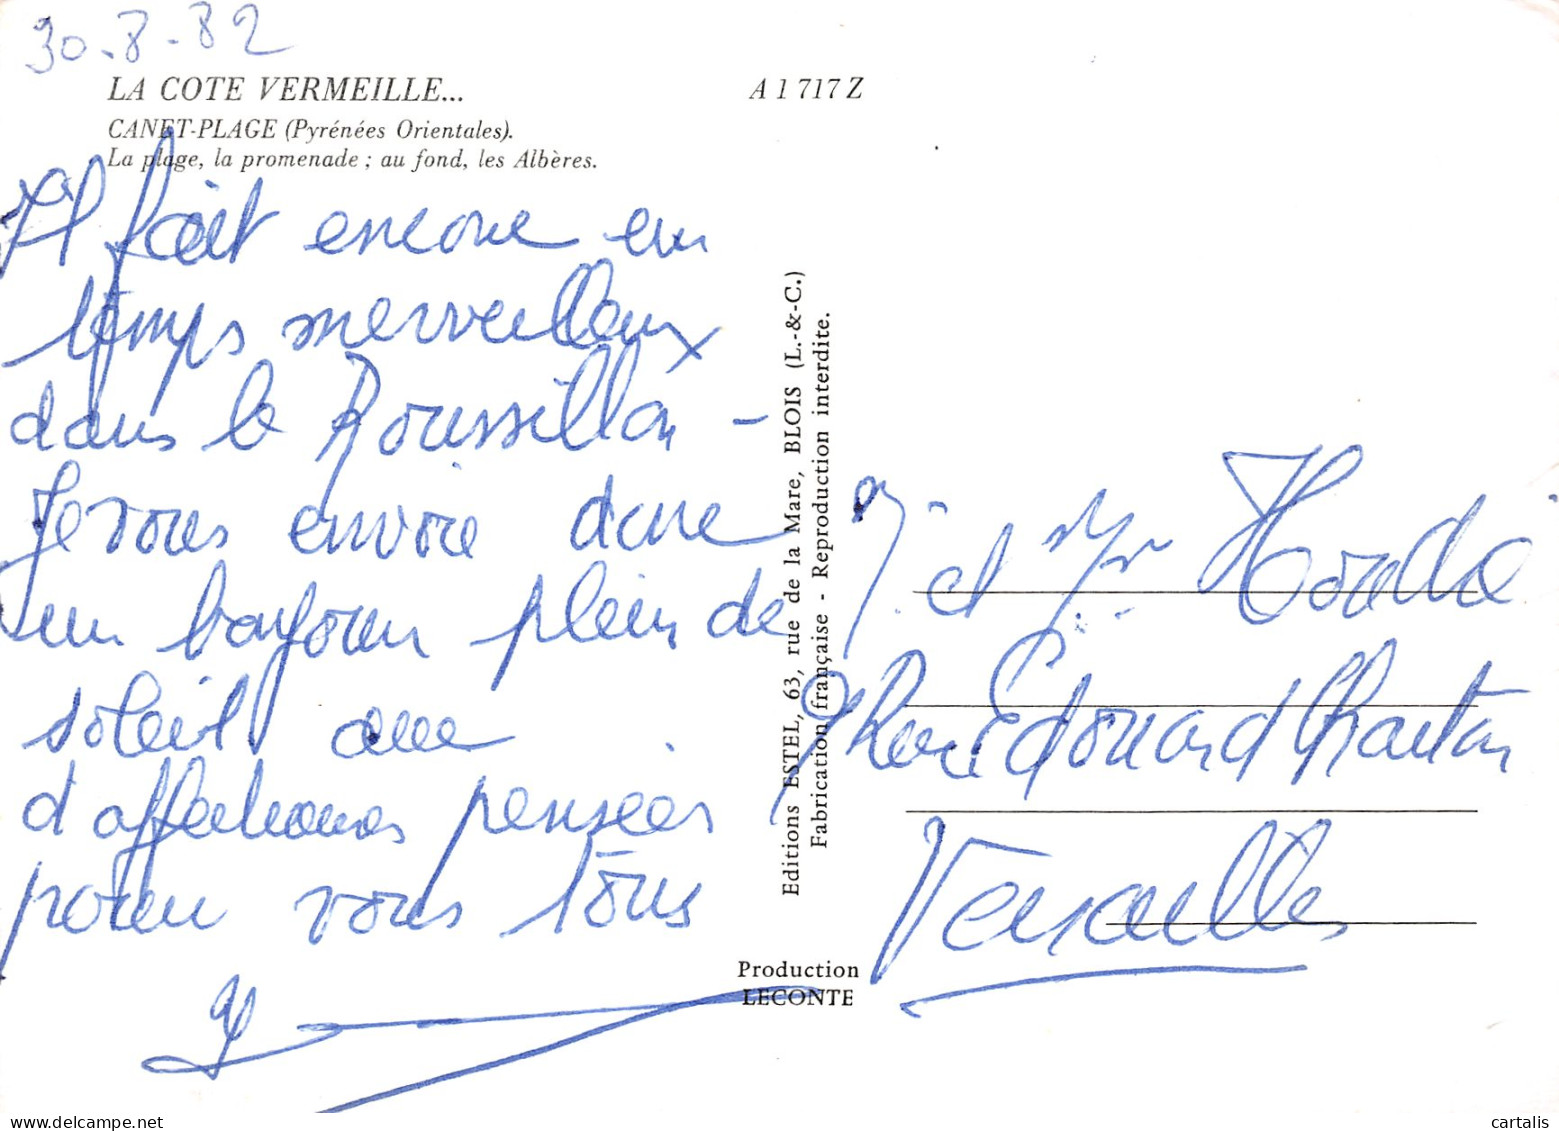 30-8-82
LA COTE VERMEILLE...
A 1 717 Z
CANET-PLAGE (Pyrénées Orientales).
La plage, la promenade ; au fond, les Albères.
Il fait encore un
temps merveilleux
dans le Roussillon -
Je vous envoie donc
un bonjour plein de
soleil avec
d'affectueuses pensées
pour vous tous
Editions ESTEL, 63, rue de la Mare, BLOIS (L.-&-C.)
Fabrication française - Reproduction interdite.
Production
LECONTE
et
Edouard Charton
Versailles
cartalis